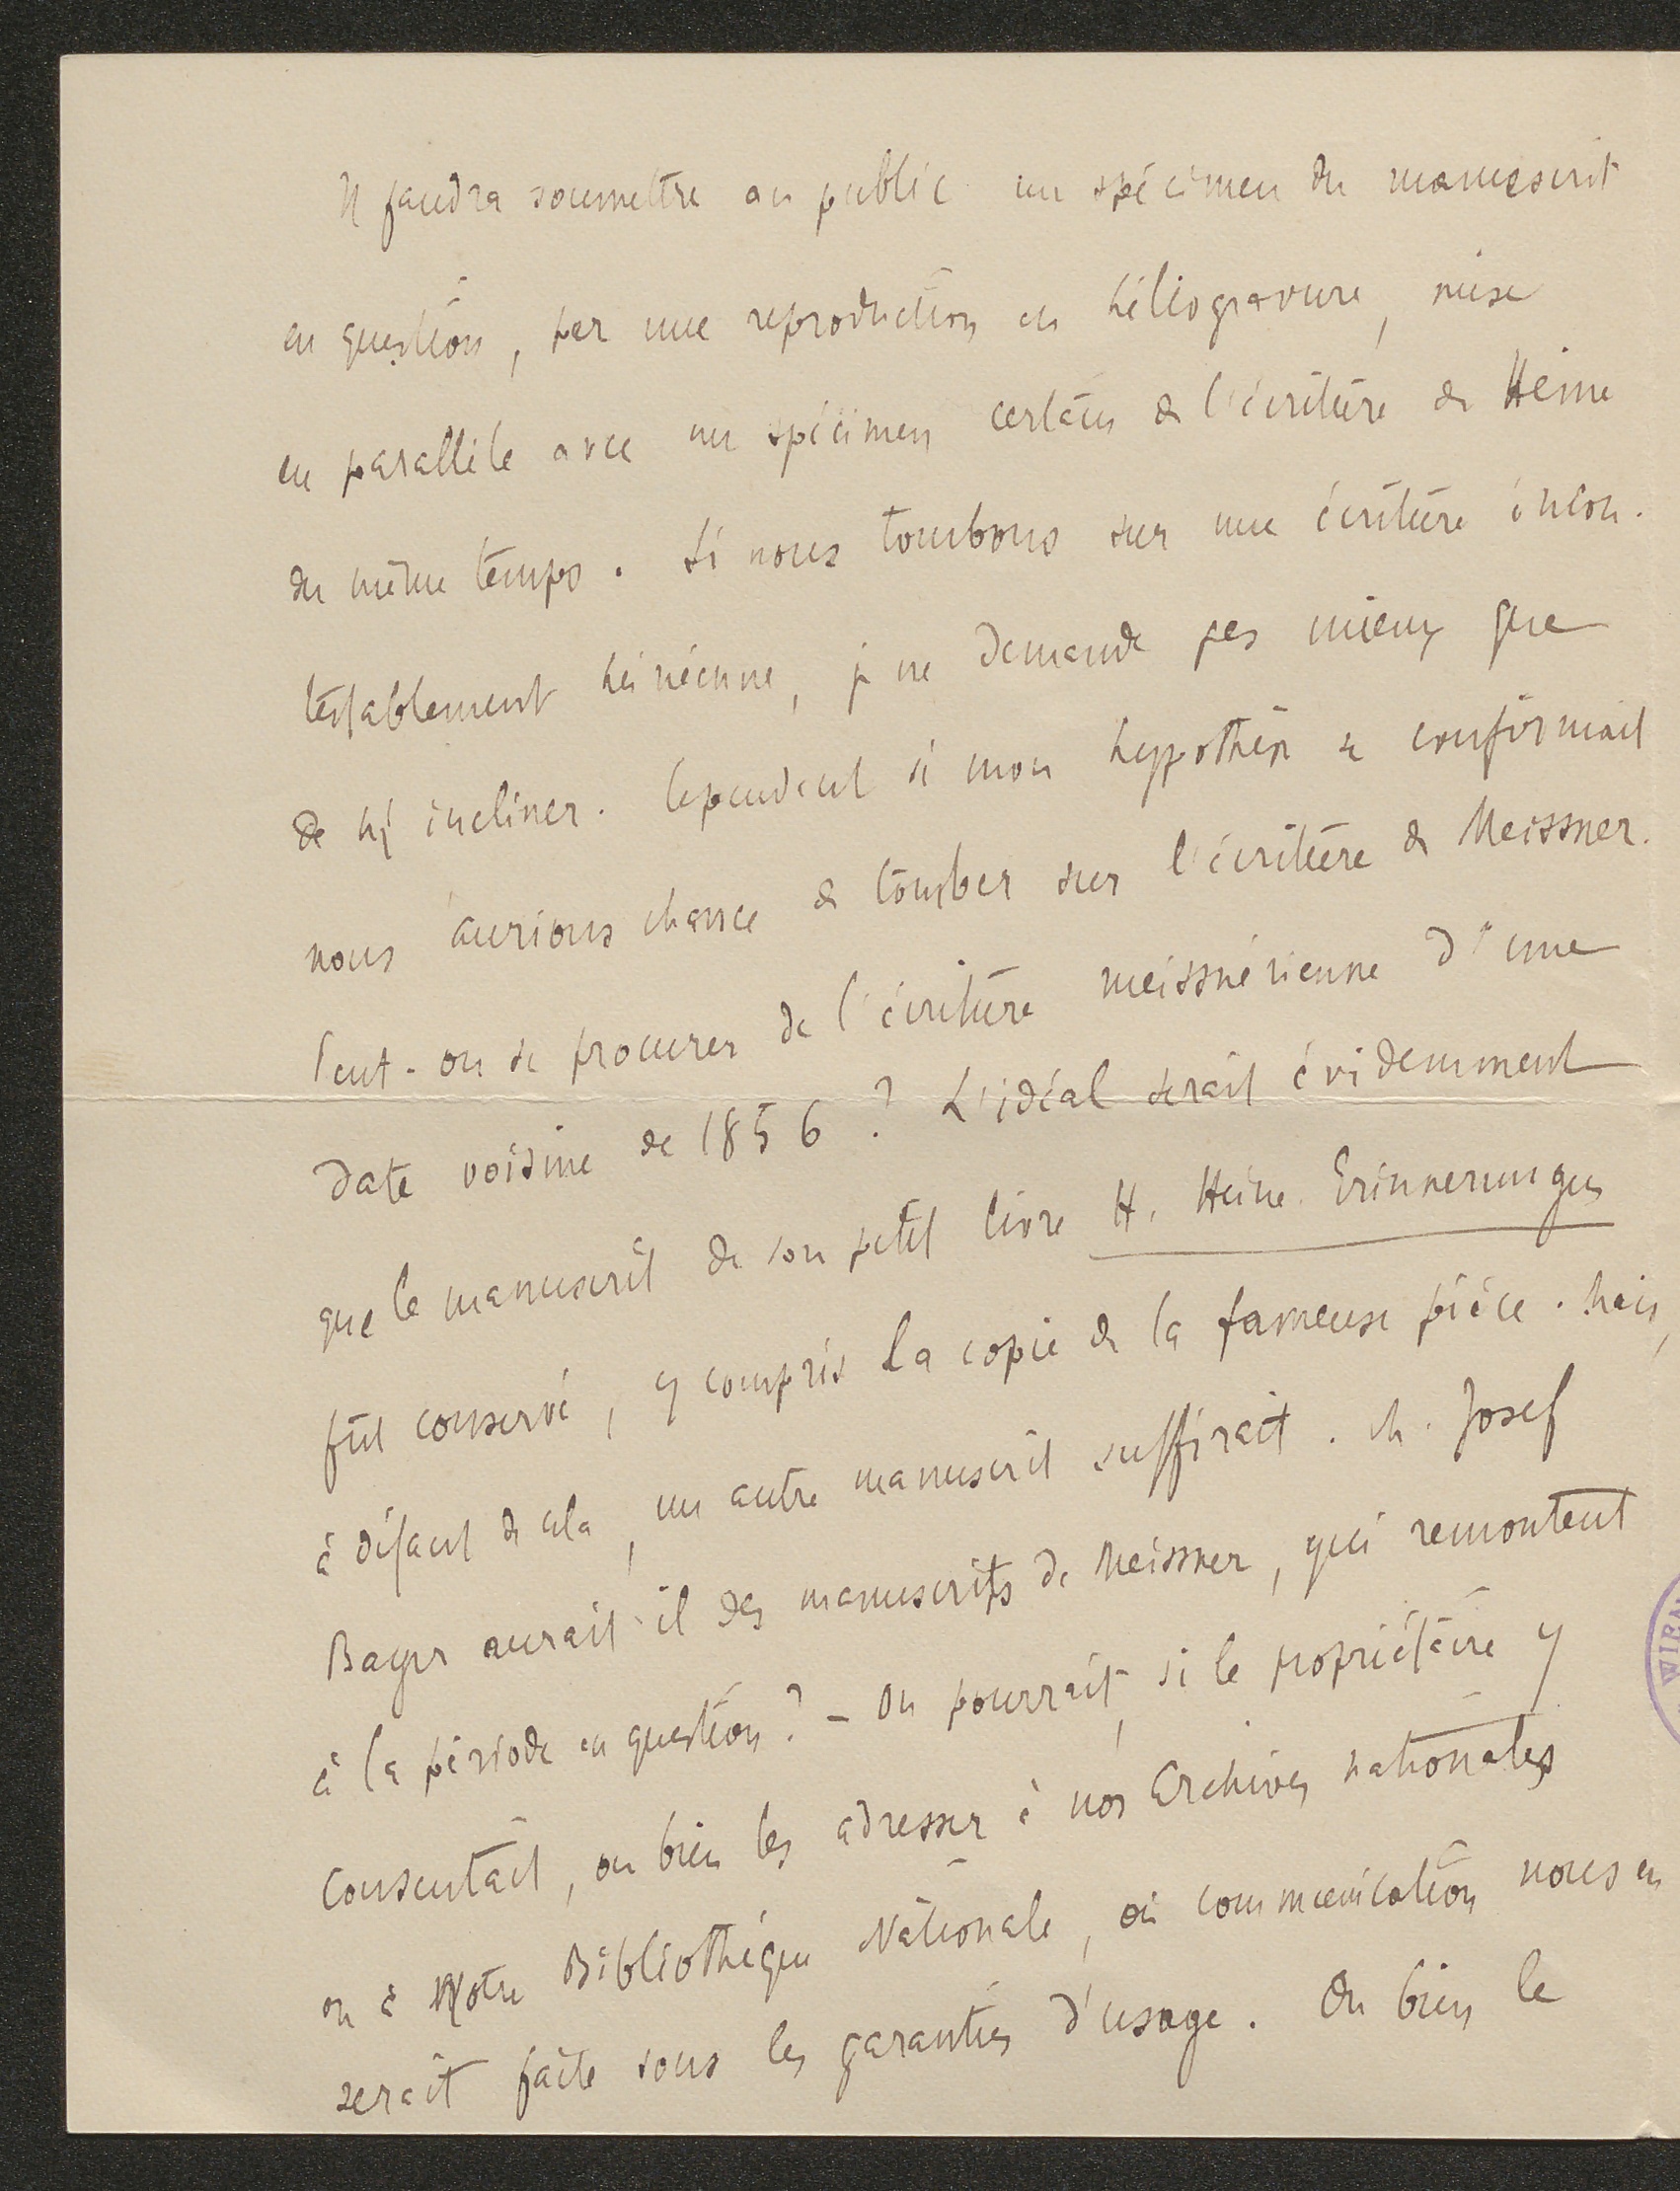 Il faudra soumettre au public un spécimen du manuscrit
en question, par une reproduction en héliogravure, mise
en parallèle avec un spécimen certain de l'écriture de Heine
du même temps. Si nous tombons sur une écriture incon-
testablement heinéenne, je ne demande pas mieux que
de m'y incliner. Cependant si mon hypothèse se confirmait
nous aurions chance de tomber sur l'écriture de Meissner.
Peut-on se procurer de l'écriture meissnérienne d'une
date voisine de 1856 ? L'idéal serait évidemment
que le manuscrit de son petit livre H. Heine. Erinnerungen
fût conservé, y compris la copie de la fameuse pièce. Mais,
à défaut de cela, un autre manuscrit suffirait. M. Josef
Bayer aurait-il des manuscrits de Meissner, qui remontent
à la période en question ? – On pourrait, si le propriétaire y
consentait, ou bien les adresser à nos Archives nationales
ou à Notre Bibliothèque Nationale, où communication nous en
serait faite sous les garanties d'usage. Ou bien le
WIEN